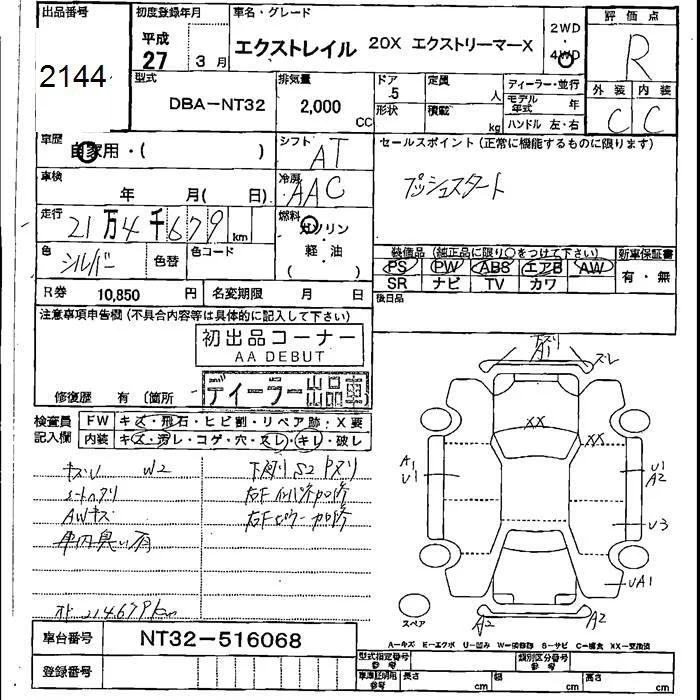 出品番号
2144
初度登録年月
平成
27 3月
車名・グレード
エクストレイル 20X エクストリーマーX
2WD
4WD
評価点
R
型式
DBA-NT32
排気量
2,000 CC
ドア 5
形状
定員 人
積載 kg
ディーラー・並行
モデル年式 年
ハンドル 左・右
外装 内装
C C
車歴
自家用・( )
シフト
AT
セールスポイント(正常に機能するものに限ります)
プッシュスタート
車検
年 月( 日)
冷房
AAC
走行
21万4千679 km
燃料
ガソリン
軽・油
( )
色
シルバー
色替
色コード
装備品(純正品に限り○をつけて下さい)
PS PW ABS エアB AW
SR ナビ TV カワ
新車保証書
有・無
R券 10,850 円
名変期限 月 日
後日品
注意事項申告欄(不具合内容等は具体的に記入して下さい)
初出品コーナー
AA DEBUT
ディーラー出品車
修復歴 有(箇所 )
検査員
記入欄
FW キズ・飛石・ヒビ割・リペア跡・X要
内装 キズ・汚レ・コゲ・穴・スレ・キレ・破レ
キズU W2
AWキズ
車内臭い有
下廻りS2
ズレ
A1
XX
XX
A1
U1
U1
A2
U3
UA1
A2
A2
スペア
A=キズ E=エクボ U=凹み W=補修跡 S=サビ C=腐食 XX=交換済
車台番号 NT32-516068
登録番号
型式指定番号
参考
類別区分番号
参考
車庫証明用
参考
長さ cm
幅 cm
高さ cm